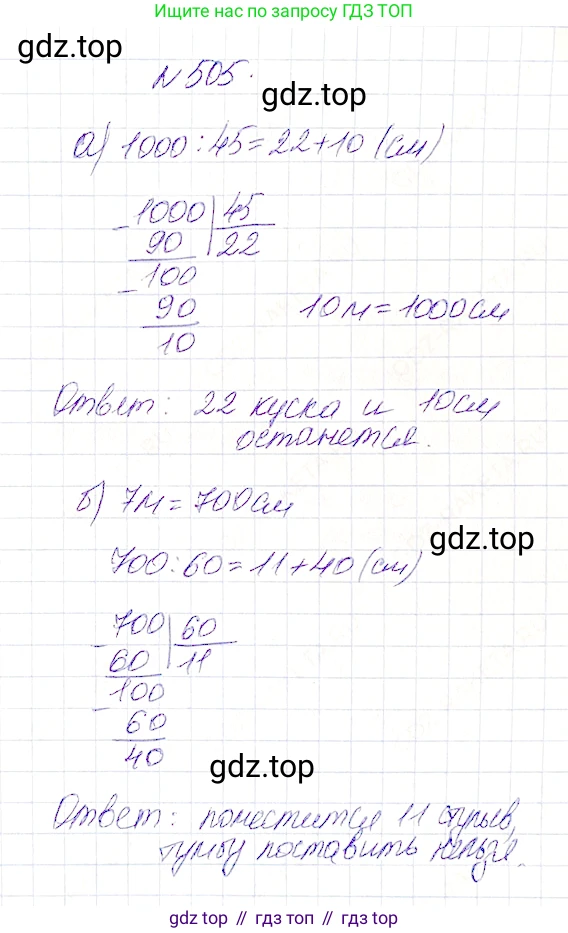 Ищите нас по запросу ГДЗ ТОП
gdz.top
№505.
gdz.top
а) 1000:45=22+10 (см)
1000 45
90 22
100
90
10
10м=1000см
Ответ: 22 куска и 10см
останется.
б) 7м=700см
gdz.top
700:60=11+40 (см)
700 60
60 11
100
60
40
gdz.top
Ответ: поместится 11 стульев,
тумбу поставить нельзя.
gdz.top // гдз топ // gdz.top